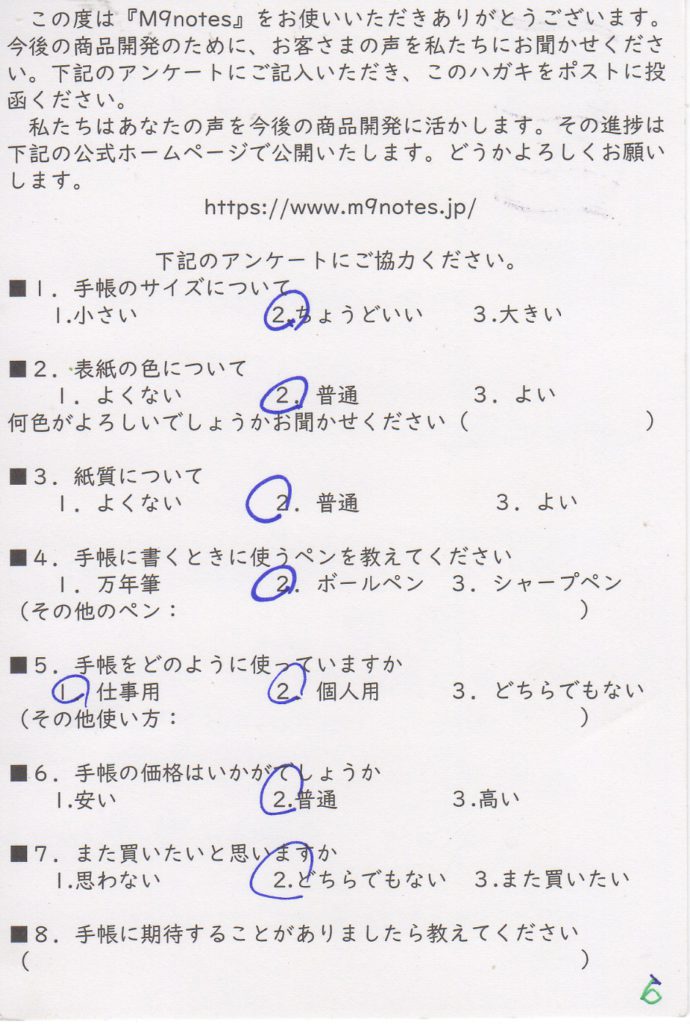 この度は『M9notes』をお使いいただきありがとうございます。
今後の商品開発のために、お客さまの声を私たちにお聞かせくださ
い。下記のアンケートにご記入いただき、このハガキをポストに投
函ください。
私たちはあなたの声を今後の商品開発に活かします。その進捗は
下記の公式ホームページで公開いたします。どうかよろしくお願い
します。
https://www.m9notes.jp/
下記のアンケートにご協力ください。
■1．手帳のサイズについて
1.小さい 2.ちょうどいい 3.大きい
■2．表紙の色について
1．よくない 2．普通 3．よい
何色がよろしいでしょうかお聞かせください（ ）
■3．紙質について
1．よくない 2．普通 3．よい
■4．手帳に書くときに使うペンを教えてください
1．万年筆 2．ボールペン 3．シャープペン
（その他のペン： ）
■5．手帳をどのように使っていますか
1．仕事用 2．個人用 3．どちらでもない
（その他使い方： ）
■6．手帳の価格はいかがでしょうか
1.安い 2.普通 3.高い
■7．また買いたいと思いますか
1.思わない 2.どちらでもない 3.また買いたい
■8．手帳に期待することがありましたら教えてください
（ ）